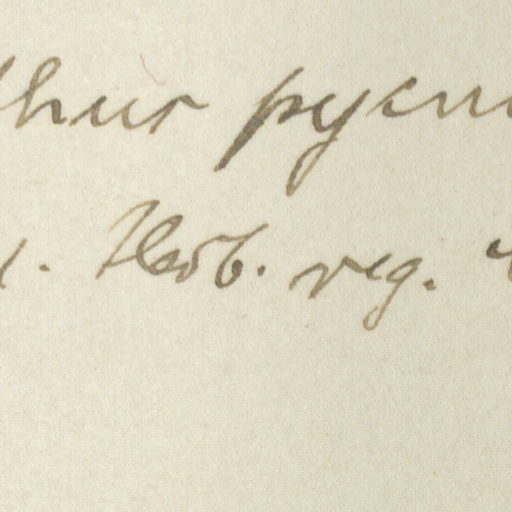 thus pycn
. Herb. reg.